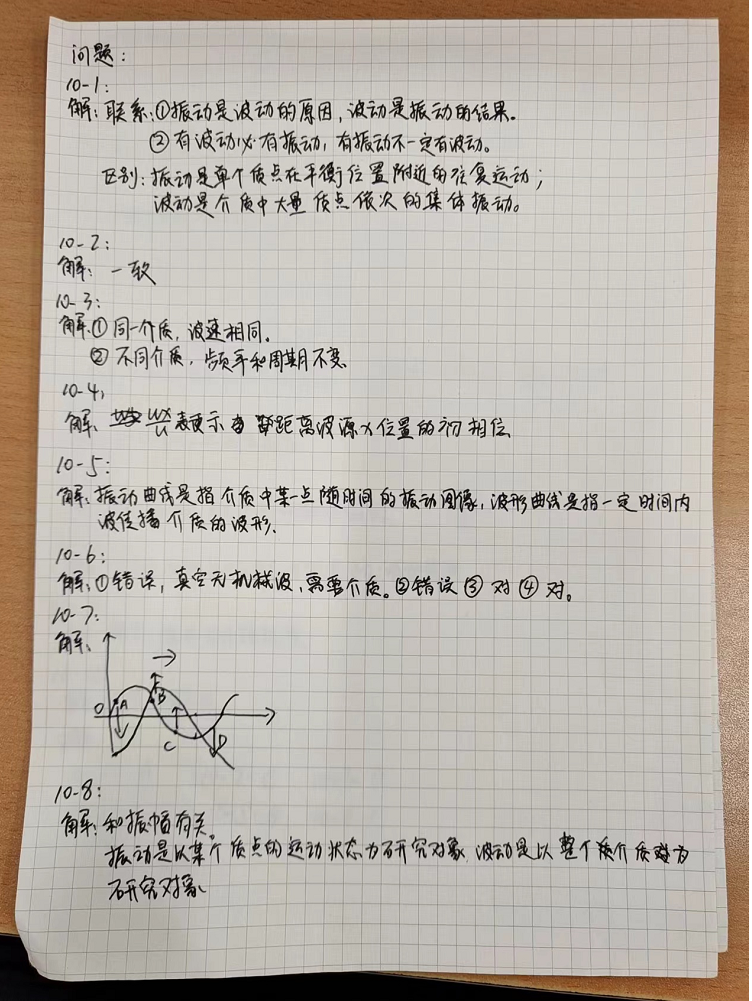 问题:
10-1:
解: 联系:①振动是波动的原因,波动是振动的结果.
② 有波动必有振动,有振动不一定有波动。
区别: 振动是单个质点在平衡位置附近的往复运动;
波动是介质中大量质点依次的集体振动。
10-2:
解: 一致
10-3:
解:① 同一介质,波速相同.
② 不同介质,频率和周期不变.
10-4,
解: ωx/u 表示 距离波源x位置的初相位
10-5:
解: 振动曲线是指介质中某一点随时间的振动图像,波形曲线是指一定时间内
波传播介质的波形.
10-6:
解:①错误,真空无机械波,需要介质。②错误 ③ 对 ④ 对。
10-7:
解:
O A B C D
10-8:
解: 和振幅有关。
振动是以某个质点的运动状态为研究对象,波动是以整个介质为
研究对象.